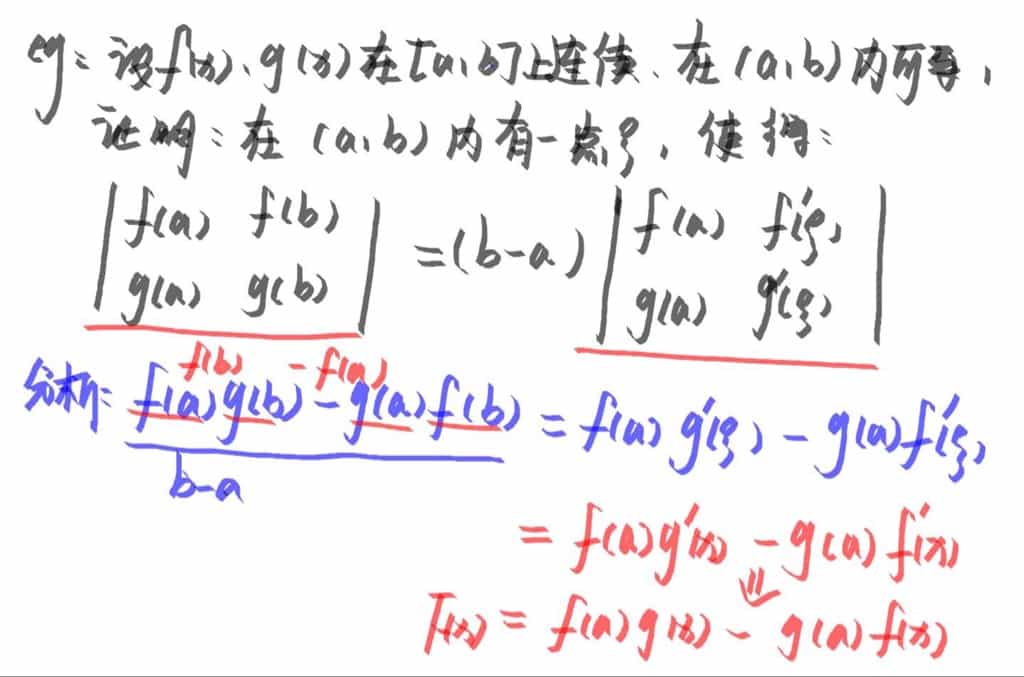 eg: 设f(x)、g(x)在[a,b]上连续、在(a,b)内可导,
证明:在(a,b)内有一点ξ,使得:
|f(a) f(b)| =(b-a) |f(a) f'(ξ)|
|g(a) g(b)| |g(a) g'(ξ)|
f(b) -f(a)
分析: f(a)g(b)-g(a)f(b) = f(a)g'(ξ) - g(a)f'(ξ)
b-a
= f(a)g'(x) - g(a)f'(x)
⇓
F(x) = f(a)g(x) - g(a)f(x)